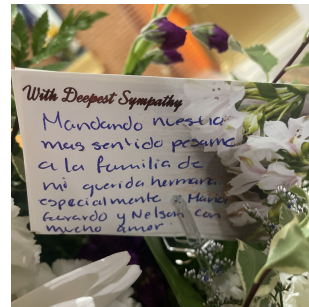 With Deepest Sympathy
Mandando nuestra
mas sentido pesame
a la familia de
mi querida hermana
especialmente : Maria
Gerardo y Nelson con
mucho amor